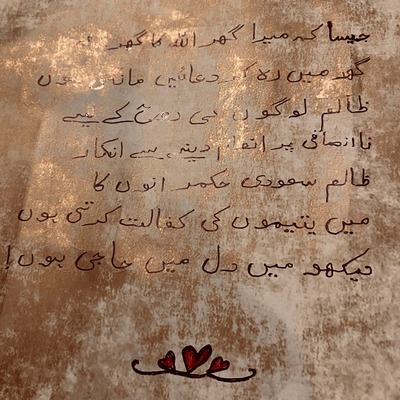 جیسا کہ میرا گھر اللہ کا گھر
گھر میں رہ کر دعائیں مانگتی ہوں
ظالم لوگوں کی کے لیے
ناانصافی پر انعام دینے سے انکار
ظالم سعودی حکمرانوں کا
میں یتیموں کی کفالت کرتی ہوں
دیکھو میں دل میں حاجی ہوں!